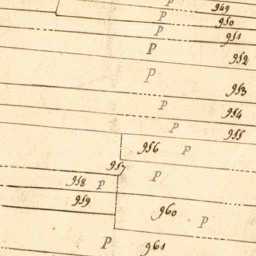 P 949
P 950
P 951
P 952
P 953
P 954
P 955
956 P
957 P
958 P
959
960 P
P 961